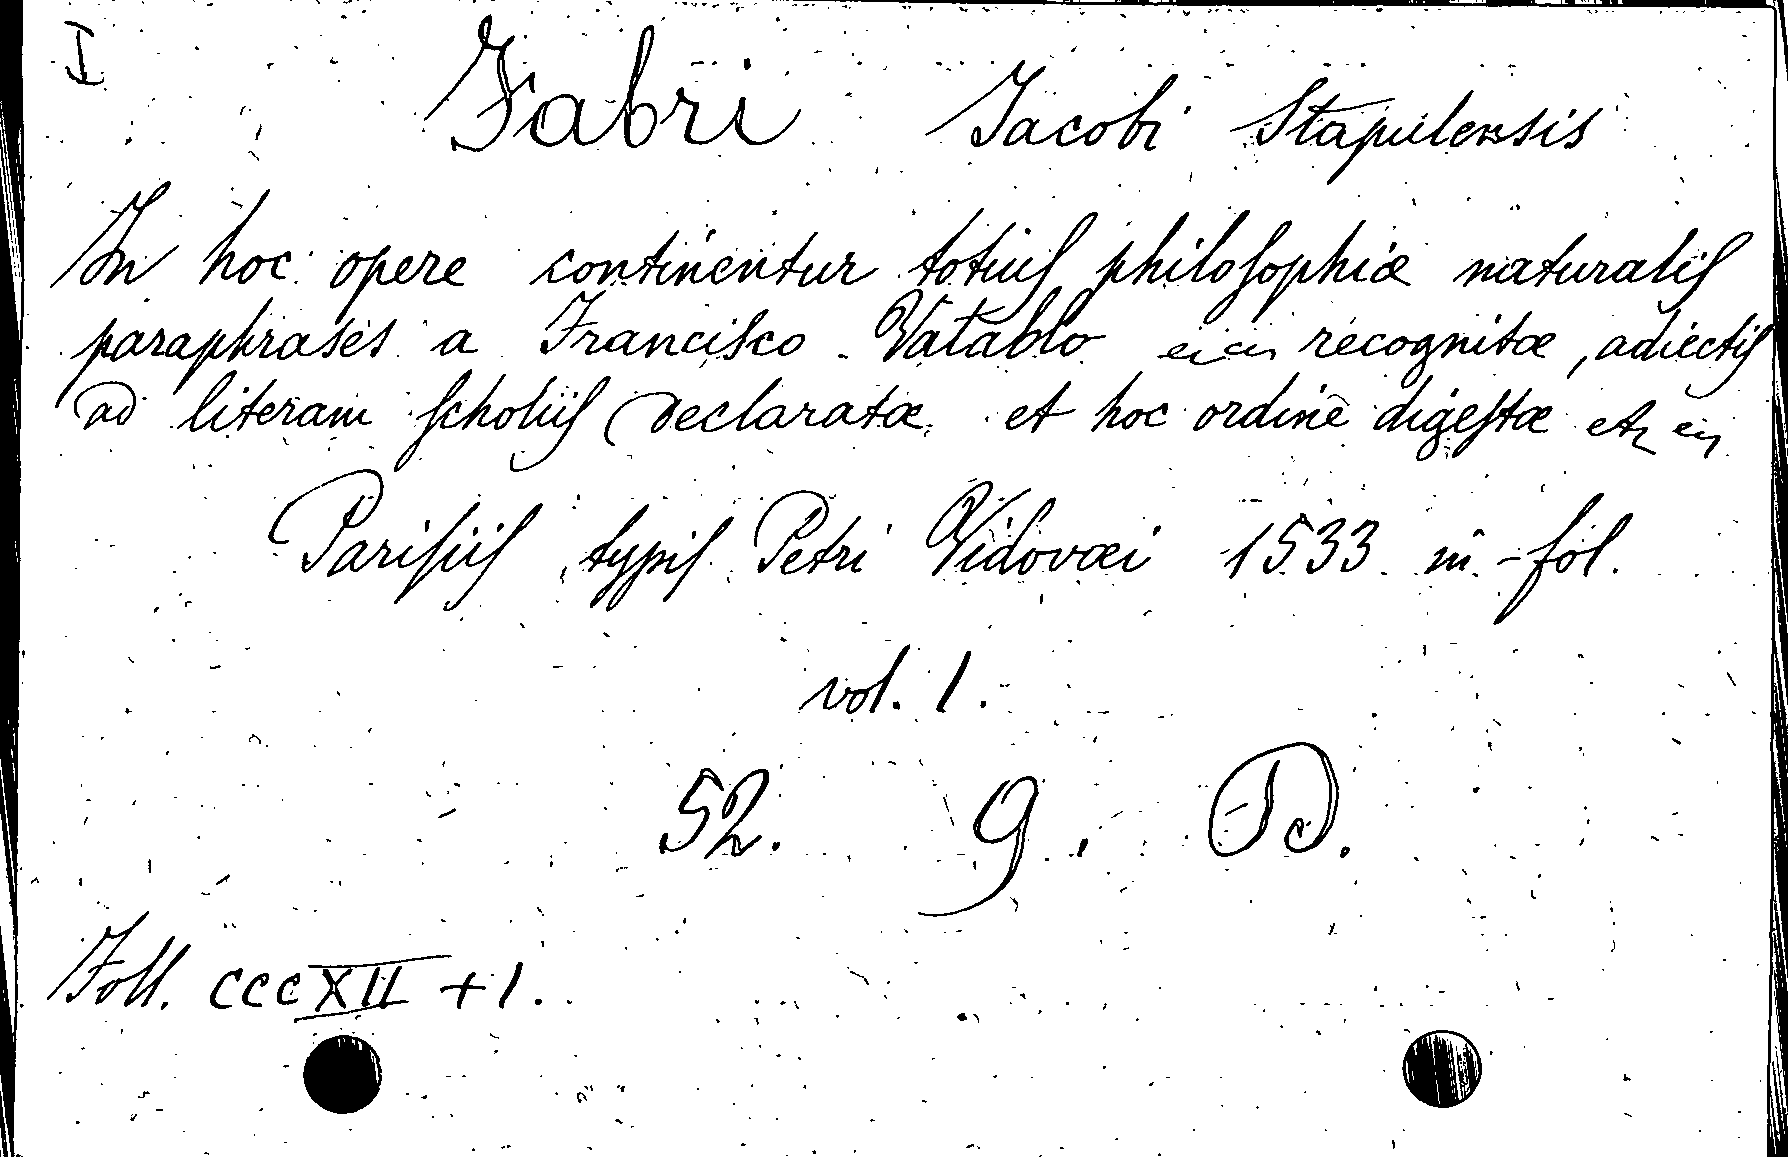 I
Fabri Jacobi Stapulensis
In hoc opere continentur totiuſ philoſophiæ naturaliſ
paraphrases a Franciſco Vatablo recognitæ, adiectiſ
ad literam ſcholiiſ declaratæ et hoc ordine digeſtæ etc
Pariſiiſ, typiſ Petri Vidovæi 1533 in-fol.
vol. 1.
52. 9. D.
Foll. CCCXII + 1.